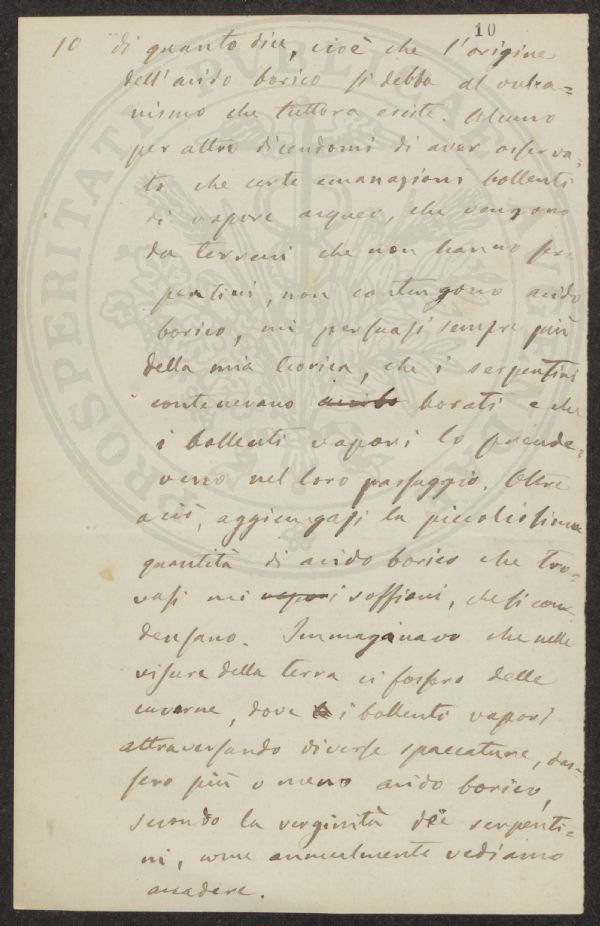 10
10 di quanto dice, cioè che l'origine
dell'acido borico si debba al vulca=
nismo che tuttora esiste. Alcuno
per altro dicendomi di aver osserva=
to che certe emanazioni bollenti
di vapore acqueo, che vengono
da terreni che non hanno ser
pentini, non contengono acido
borico, mi persuasi sempre più
della mia teorica, che i serpentini
contenevano borati e che
i bollenti vapori lo prende=
vano nel loro passaggio. Oltre
a ciò, aggiungasi la piccolissima
quantità di acido borico che tro=
vasi nei vapori soffioni, che si con=
densano. Immaginavo che nelle
viscere della terra ci fossero delle
caverne, dove i bollenti vapori
attraversando diverse spaccature, das=
sero più o meno acido borico,
secondo la verginità dei serpenti=
ni, come annualmente vediamo
accadere.
PROSPERITATI PUBLICAE